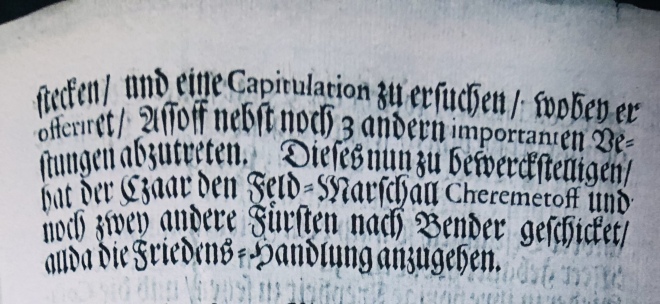 stecken/ und eine Capitulation zu ersuchen/ wobey er
offeriret/ Assoff nebst noch 3 andern importanten Ve=
stungen abzutreten. Dieses nun zu bewerckstelligen/
hat der Czaar den Feld=Marschall Cheremetoff und
noch zwey andere Fürsten nach Bender geschicket/
allda die Friedens=Handlung anzugehen.